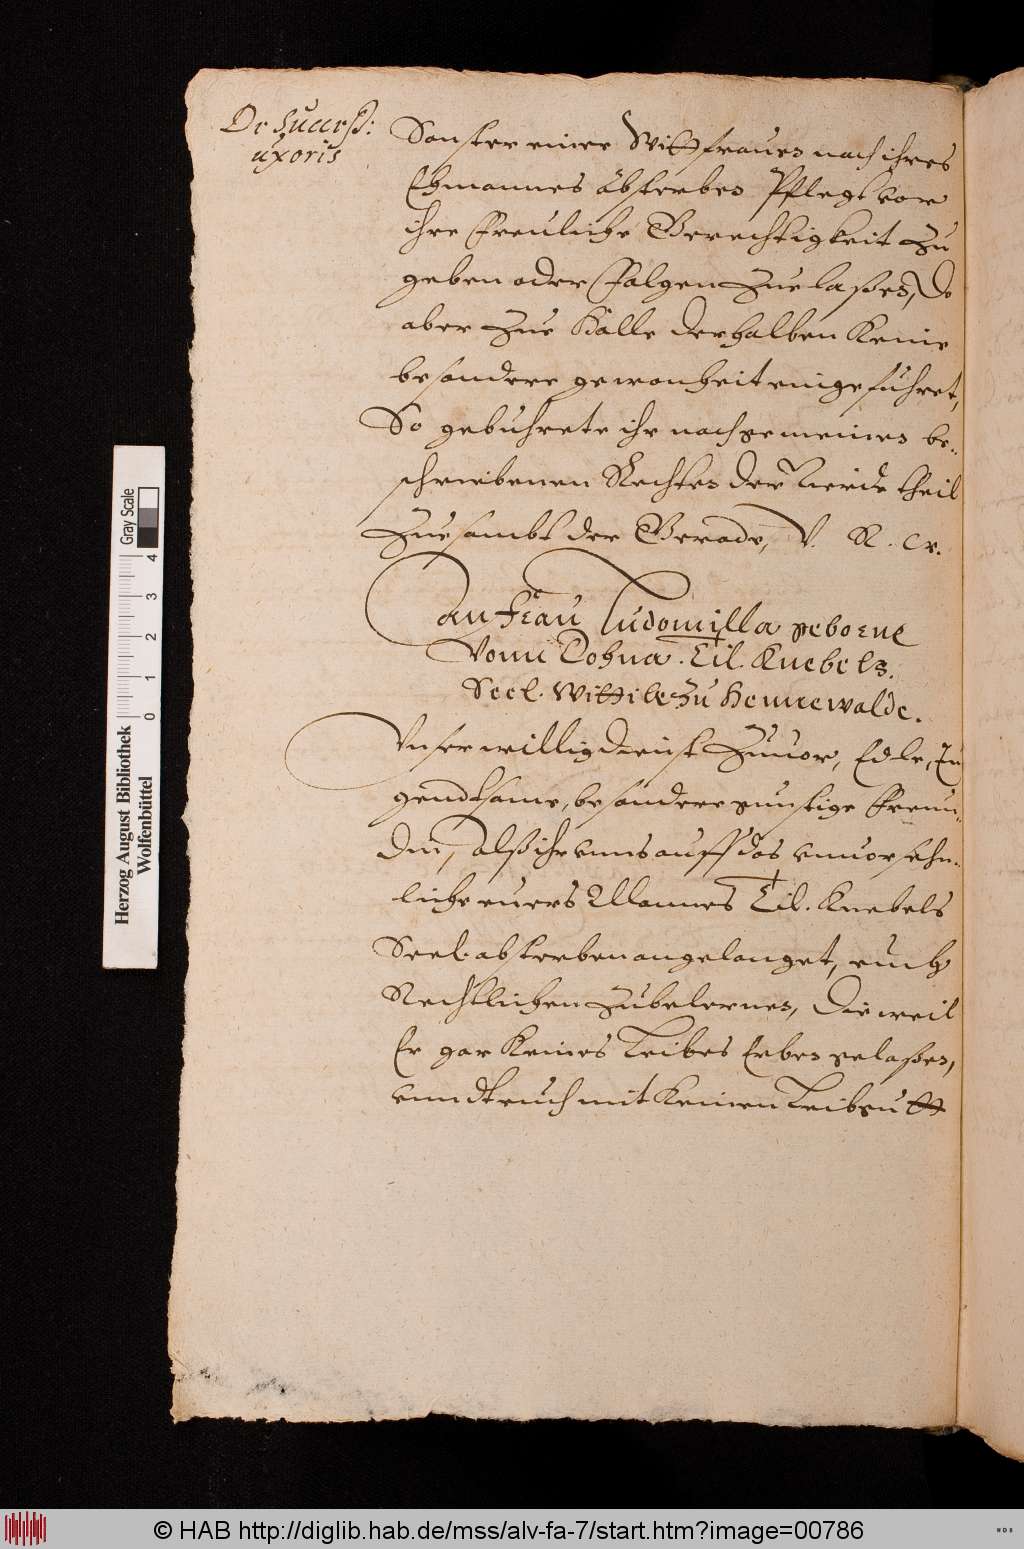 De Success:
uxoris
Sonsten einer Wittfrauen nach ihres
Ehmannes absterben Pfleget vor
ihre Freuliche Gerechtigkeit zu
geben oder Folgen zue laßen, Do
aber zue Halle derhalben Keine
besondere gewonheit eingeführet,
So gebuhrete ihr nach gemeines be-
schriebenen Rechten der Vierde theil
Zuesambt der Gerade, V. R. W.
An Frau Ludomilla geborne
Vonn Dohna. Til. Knebels
Seel. Wittibe zu Hennewalde.
Vnser willig dienst zuuor, Edle, Tu
gendtsame, besondere gunstige Freun-
din, Alß ihr vnns auff das vnuorsehn-
liche euers Mannes Til. Knebels
Seel. absterben angelanget, euch
Rechtlichen zubelernen, Dieweil
Er gar Keines Leibes Erben gelaßen,
vnndt euch mit Keinen Leibgutt
Gray Scale
0 1 2 3 4
Herzog August Bibliothek
Wolfenbüttel
© HAB http://diglib.hab.de/mss/alv-fa-7/start.htm?image=00786